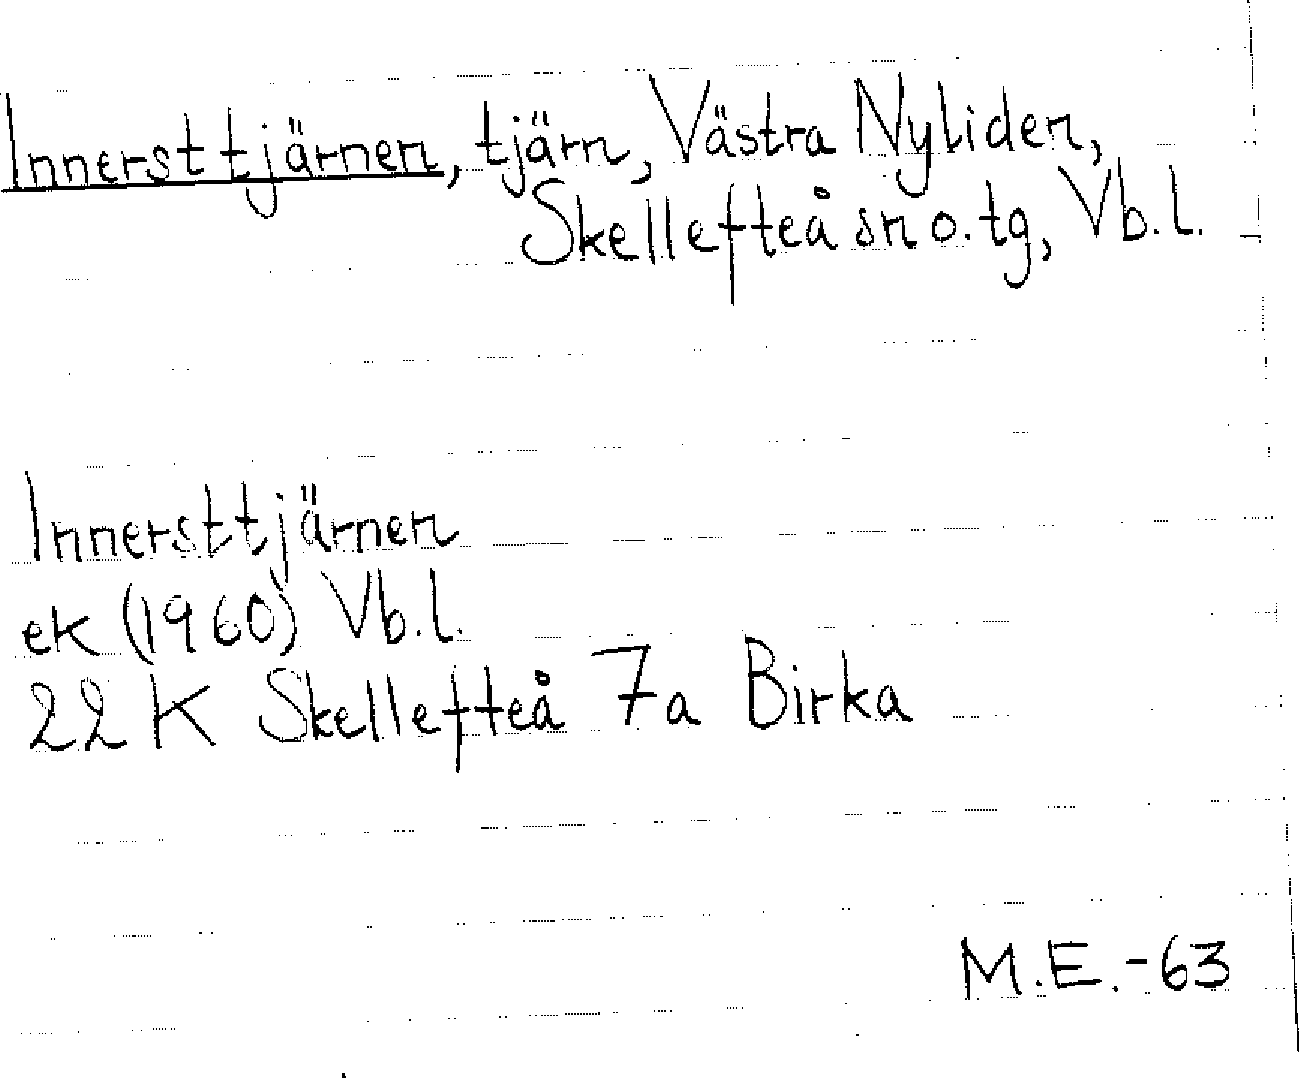 Innersttjärnen, tjärn, Västra Nyliden,
Skellefteå sn o. tg, Vb.l.
Innersttjärnen
ek (1960) Vb.l.
22 K Skellefteå 7a Birka
M.E.-63